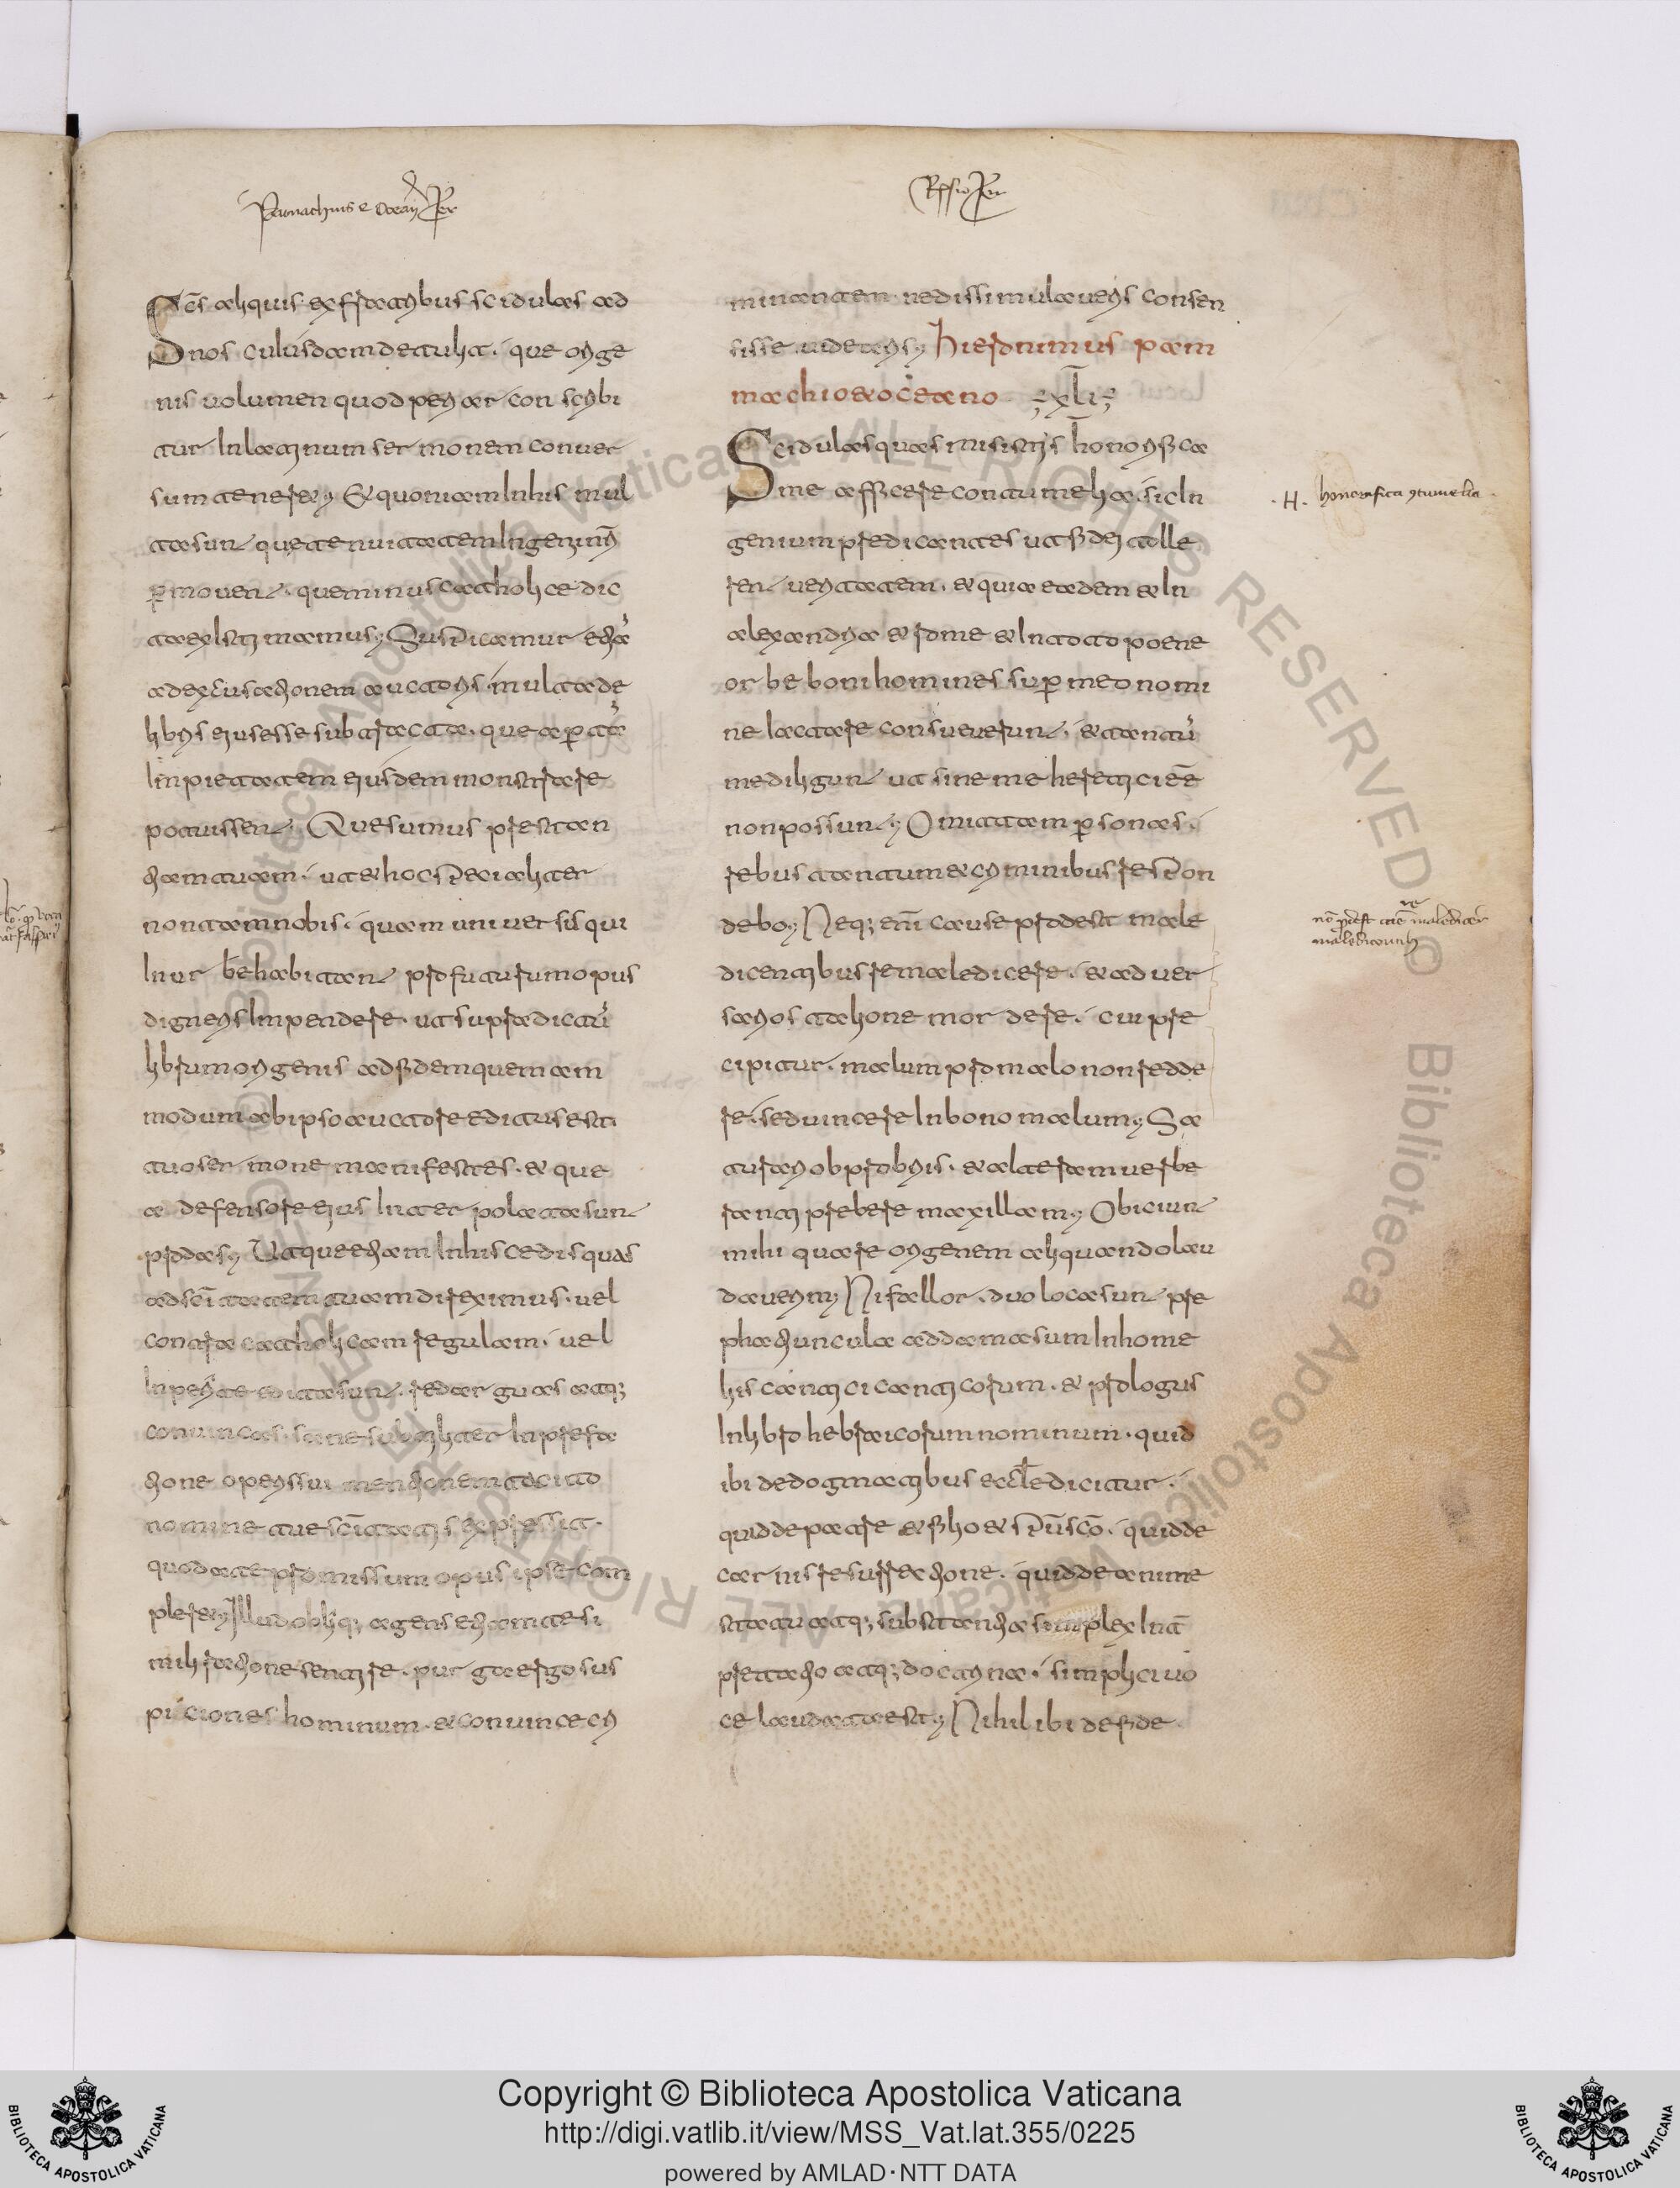 Pamachius & Oceanus
Scs aliquis ex fratribus scidulas ad
nos cuiusdam detulit. que orige
nis volumen quod periar con scribi
tur In latinum sermonem conver
sum teneret; Et quoniam In his mul
ta sunt que tenuitatem Ingenii nri
permovent. que minus catholice dic
ta existimamus; Suspicamur etiā
ad excusationem auctoris multa de
libris eius esse subtracta. que apertā
Inpietatem eiusdem monstrare
potuissent; Quesumus prestan
tiam tuam. ut et hoc specialiter
non tam nobis. quam universis qui
In urbe habitant pro futurum opus
digneris Inpendere. ut supradictū
librum origenis ad fidem quem am
modum ab ipso auctore editus est.
tuo sermone manifestes. et que
a defensore eius Inter polata sunt
prodas; Utque etiam In hisce dis quas
ad scītatem tuam direximus. vel
contra catholicam regulam. vel
Inperite edita sunt. redarguas atq;
convincas. sane subtiliter In prefa
tione operis sui mentionem tacito
nomine tue scītatis expressit.
quod a te promissum opus ipse com
pleret; Illud oblique agens etiam te si
mili ratione sentire. purga ergo sus
piciones hominum. et convince cri
minantem. ne dissimulaveris consen
sisse videaris; Hieronimus pam
machio et oceano XLI
Scidulas quas misistis honorifica
me affecere contumelia. sic In
genium predicantes ut fidei tolle
rent veritatem. et quia eadem et In
alexandria et rome et In toto poene
orbe boni homines super meo nomi
ne lactare consueverunt. et tantū
me diligunt ut sine me heretici eē
non possunt; Omittam personas.
rebus tantum et criminibus respon
debo; Neq; enī cause prodest male
dicentibus remaledicere. et adver
sarios talione mordere. cui pre
cipitur. malum pro malo non redde
re. sed vincere In bono malum; Sa
turari obprobriis. et alteram verbe
ranti prebere maxillam; Obiciunt
mihi quare origenem aliquando lau
daverim; Ni fallor. duo loca sunt pre
phatiuncula ad damasum In home
lis cantici canticorum. et prologus
In libro hebraicorum nominum. quid
ibi de dogmatibus ecclē dicitur.
quid de patre et filio et spū scō. quid de
carnis resurrectione. quid de anime
statu atq; substantia simplex Int̄
pretatio atq; doctrina. simplici vo
ce laudata est; Nihil ibi de fide
. H. honorifica contumelia.
Copyright © Biblioteca Apostolica Vaticana
http://digi.vatlib.it/view/MSS_Vat.lat.355/0225
powered by AMLAD·NTT DATA
BIBLIOTECA APOSTOLICA VATICANA
BIBLIOTECA APOSTOLICA VATICANA